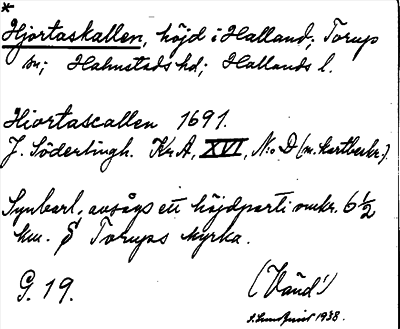 *
Hjortaskallen, höjd i Halland; Torup
sn; Halmstads hd; Hallands l.
Hiortascallen 1691.
J. Söderlingh. Kr. A, XVI, N:o D (m. kartbeskr.).
Synbarl, avsågs ett höjdparti omkr. 6 1/2
km. S Torups kyrka.
G. 19.
(Vänd!)
S. Lundqvist 1938.